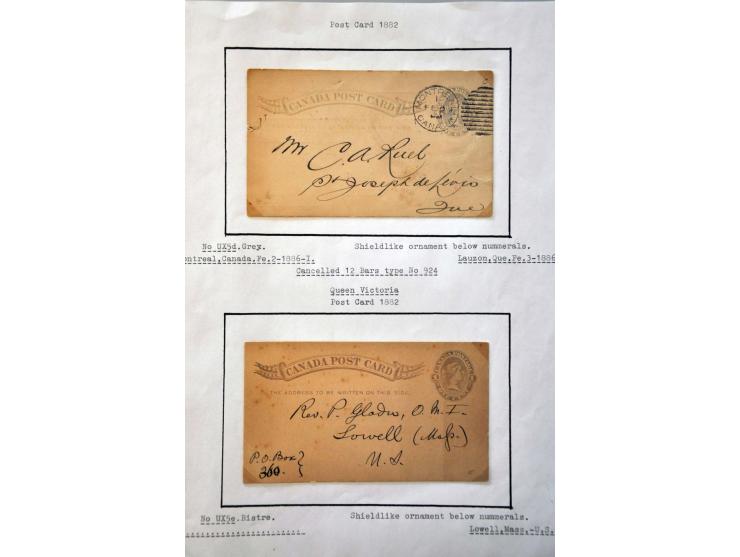 Post Card 1882
CANADA POST CARD
MONTREAL
CANADA
Mr C. A. Ruel
St Joseph de Lévis
Que
No UX5d.Grey. Shieldlike ornament below nummerals.
ontreal,Canada,Fe,2-1886-I. Lauzon,Que.Fe.3-1886
Cancelled 12 Bars type No 924
Queen Victoria
Post Card 1882
CANADA POST CARD
THE ADDRESS TO BE WRITTEN ON THIS SIDE.
Rev. P. Gladu, O. M. I.
Lowell (Mass.)
U. S.
P.O. Box
No UX5e.Bistre. Shieldlike ornament below nummerals.
Lowell,Mass,-U.S